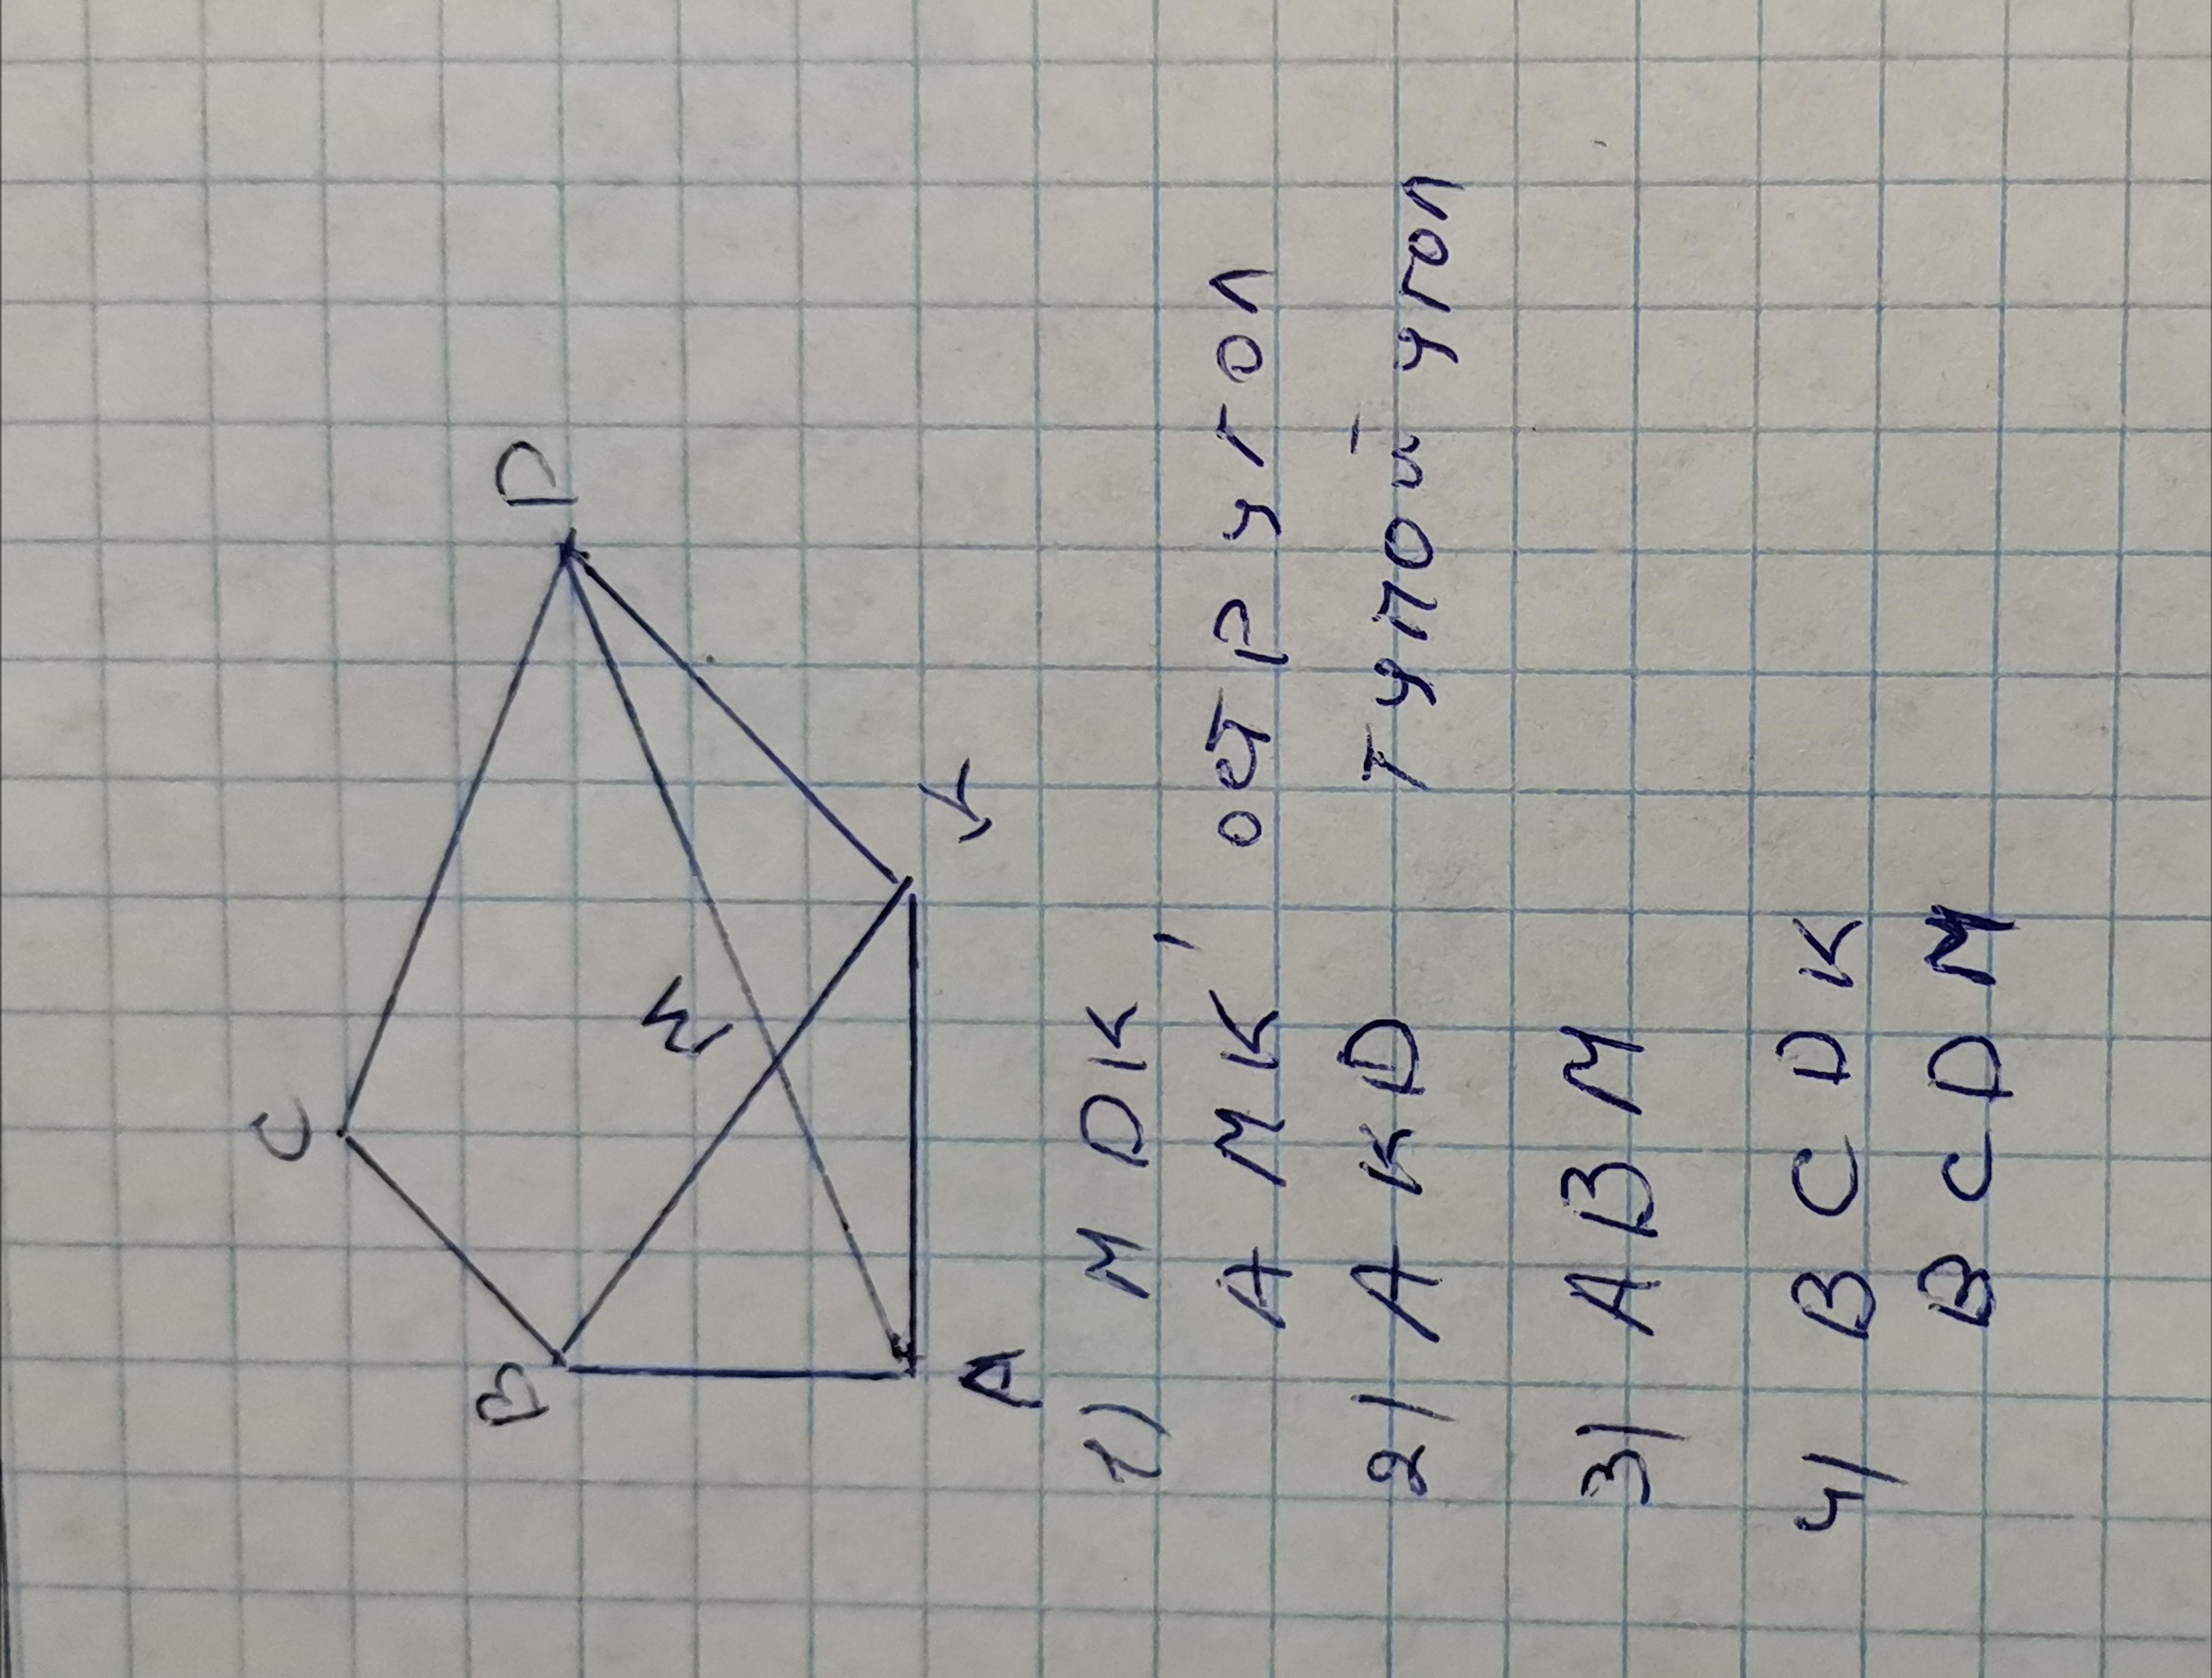 C
B
D
M
A
K
1) MDK
AMK' остр угол
2) AKD тупой угол
3) ABM
4) BCDK
BCDM